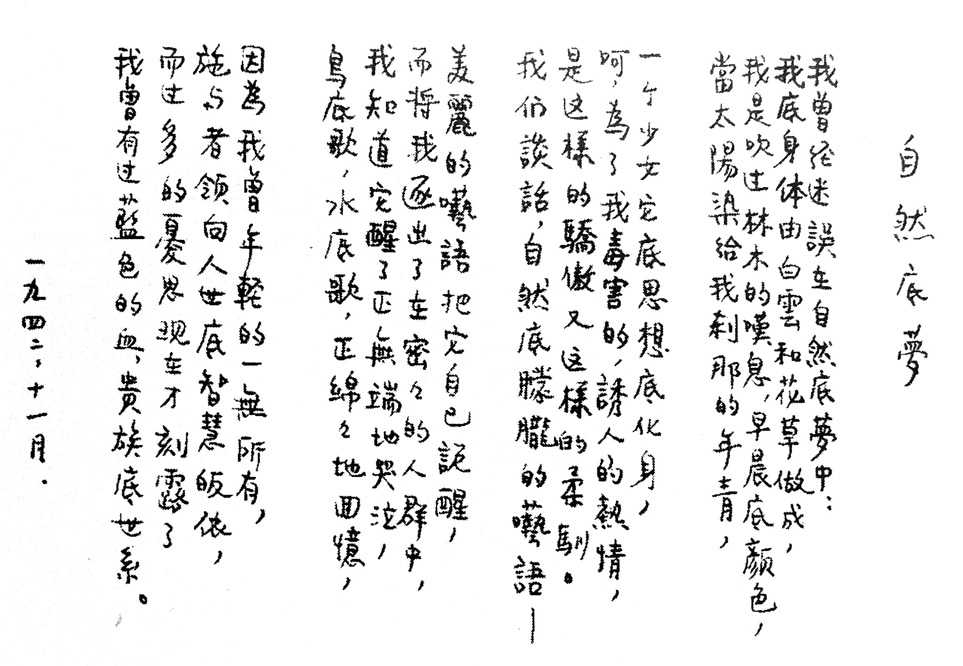 自然底夢
我曾经迷誤在自然底夢中：
我底身体由白雲和花草做成，
我是吹过林木的嘆息，早晨底顏色，
當太陽染给我刹那的年青，
一个少女它底思想底化身，
呵，為了我毒害的，誘人的熱情，
是这樣的驕傲又这樣的柔馴。
我们談話，自然底朦朧的囈語—
美麗的囈語把它自己說醒，
而將我逐出了在密々的人群中，
我知道它醒了正無端地哭泣，
鳥底歌，水底歌，正綿々地回憶，
因為我曾年輕的一無所有，
施与者領向人世底智慧皈依，
而过多的憂思現在才刻露了
我曾有过藍色的血，貴族底世系。
一九四二，十一月．